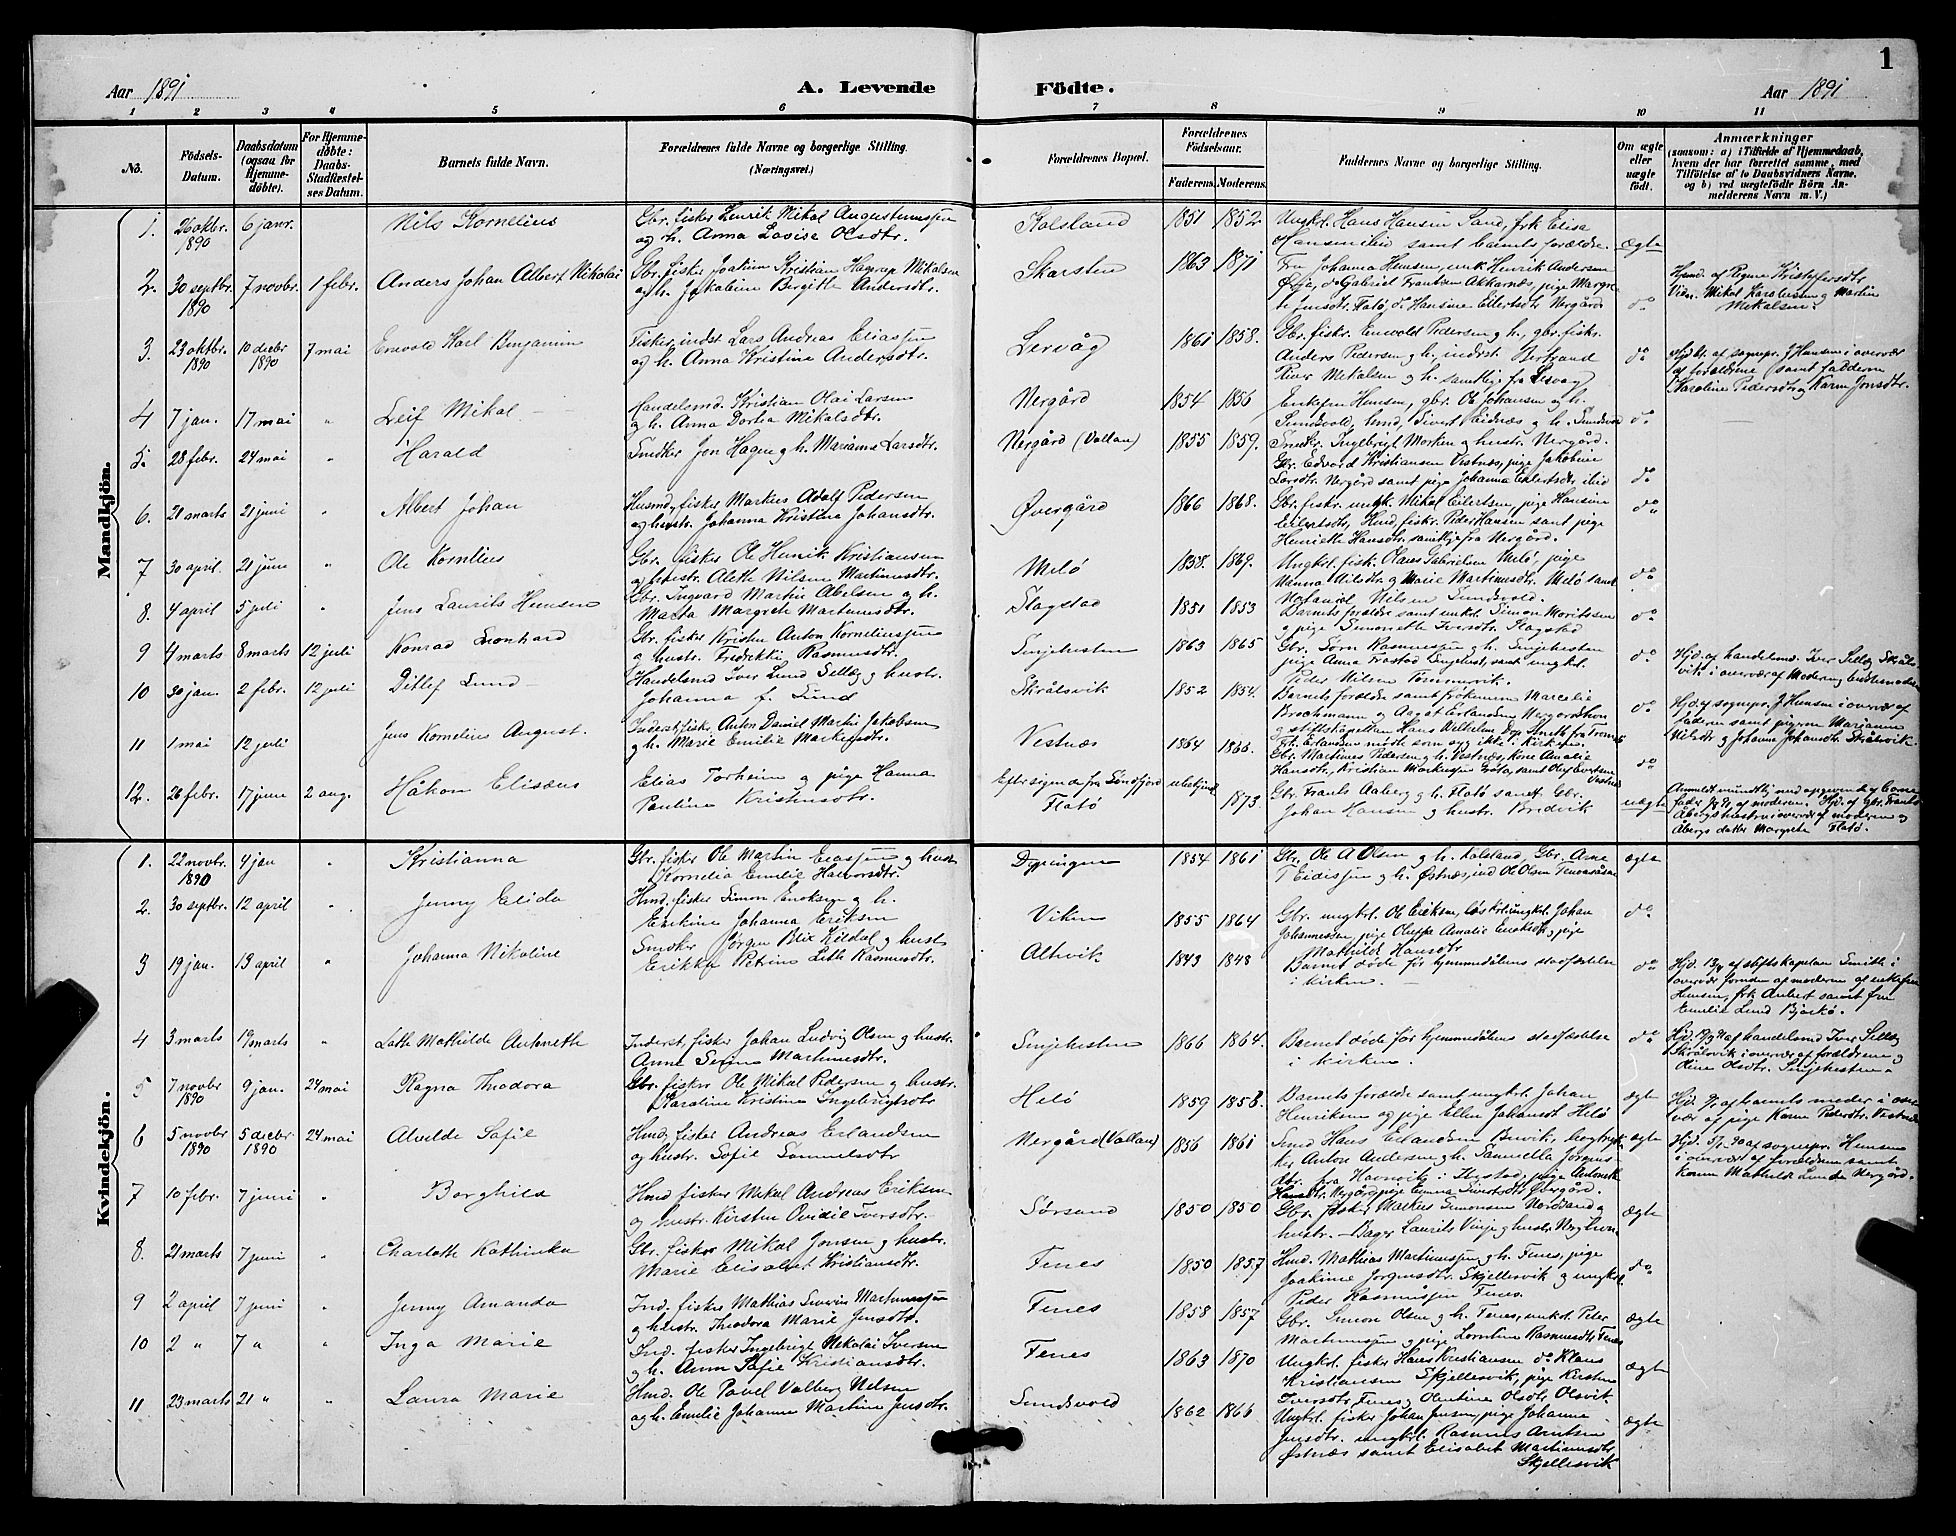 1
Aar 1891 A. Levende Födte. Aar 1891
1 2 3 4 5 6 7 8 9 10 11
No.
Födsels-
Datum.
Daabsdatum
(ogsaa for
Hjemme-
döbte).
For Hjemme-
döbte:
Daabs-
Stadfæstel-
ses Datum.
Barnets fulde Navn.
Forældrenes fulde Navne og borgerlige Stilling.
(Næringsvei.)
Forældrenes Bopæl.
Forældrenes
Födselsaar.
Faderens. Moderens.
Faddernes Navne og borgerlige Stilling.
Om ægte
eller
uægte
födt.
Anmærkninger
(saasom: a) i Tilfælde af Hjemmedaab,
hvem der har forrettet samme, med
Tilföielse af to Daabsvidners Navne,
og b) ved uægtefödte Börn An-
melderens Navn m. V.)
Mandkjön.
1. 26 oktbr. 1890 6 janr. Nils Kornelius
Gbr. fisker Henrik Mikal Augustinussen
og h. Anna Lovise Olsdtr.
Kolsland 1851 1852
Ungkl. Hans Hansen Sand, frk Elisa
Hansen ibid samt barnets forældre. ægte
2. 30 septbr. 1890 7 novbr. 1 febr. Anders Johan Albert Nikolai
Gbr. fisker Joakim Kristian Hagerup Mikalsen
og h. Jakobine Bergitte Andersdtr.
Skarsten 1863 1871
Fru Johanna Hensen, enk. Henrik Andersen
Øyja, do Gabriel Frantsen Akkarnæs, pige Margre-
te Jensdtr. Flatö, do Hansine Eilertsdtr Nergård do
Hjmd. af Regine Kristofersdtr
Vidn. Mikal Karstensen og Martin
Mikalsen.
3. 23 oktbr. 1890 10 decbr 1890 7 mai Enevold Karl Benjamin
Fisker, indst Lars Andreas Eliassen
og h. Anna Kristine Andersdtr.
Lervåg 1861 1858.
Gbr. fiskr. Enevold Pedersen og h., gbr. fiskr.
Anders Pedersen og h. inderst. Bertrand
Riier Mikalsen og h. samtlige fra Lervåg do
Hjdbt. af sognepr. J Hensen i overvær
af forældrene samt faddern
Karoline Pedersdtr og Karen Jonsdtr.
4 7 jan. 17 mai " Leif Mikal
Handelsmd. Kristian Olai Larsen
og h. Anna Dortea Mikalsdtr.
Nergård 1854 1856
Enkefru Hensen, gbr. Ole Johansen og h.
Sundsvold, hmd, Sivert Eidnæs og h. Sundsvo do
5. 28 febr. 24 mai " Harald
Snedker Jon Hagen og h. Mariane Larsdtr.
Nergård (Vallan) 1855 1859.
Snedkr. Ingebrigt Morken og hustr. Nergård.
Gbr. Edvard Kristiansen Vestnæs, pige Jakobine
Larsdtr. Nergård samt pige Johanna Eilertsdtr. ibid do
6. 21 marts 21 juni " Albert Johan
Husmd, fisker Markus Adolf Pedersen
og hustr. Johanna Kristina Johansdtr.
Øvergård 1866 1868.
Gbr. fiskr. ungk. Mikal Eilertsen, pige Hansine
Eilertsdtr, Hmd, fiskr. Peder Hansen samt pige
Henriette Hansdtr. samtlige fra Nergård. do
7 30 april. 21 june " Ole Kornelius
Gbr. fisker Ole Henrik Kristiansen
og hustr. Alette Nilsine Martinusdtr.
Melö 1838. 1849.
Ungkl. fisk. Olaus Gabrielsen Melö, pige
Nanna Nilsdtr og Marie Martinusdtr. Melö samt
Nataniel Nilsen Sundsvold. do
8. 4 april 5 juli " Jens Laurits Hensen
Gbr. Ingvard Martin Abelsen og h.
Marta Margreth Martinusdtr.
Slagstad 1851 1853
Barnets forældre samt enkl. Simon Moritsen
og pige Simonette Iversdtr. Slagstad do
9 4 marts 8 marts 12 juli Konrad Leonhard
Gbr. fisker Kristen Anton Korneliussen
og hustr. Fredrikke Rasmusdtr.
Sinjehesten 1863 1865
Gbr. Sören Rasmussen og h. Sinjehesten
pige Anna Frostad Sinjehest. samt ungkl.
Peder Nilsen Tömmervik. do
Hjd. af handelsmd. Iver Selli Skråls-
vik i overvær af Moder og Bedstemoder
10 30 jan. 2 febr. 12 juli Ditlef Lund
Handelsmd Iver Lund Selli og hustr.
Johanna f. Lund
Skrålsvik 1852 1854.
Barnets forældre samt frökenerne Marcelie
Brochmann og Aagot Erlandsen Nergårdshavn
og stiftskapellan Hans Wilhelm Dop Smith fra Tromsö
Fr. Erlandsen mödte som syg ikke i kirken. do
Hjd. af sognepr. J Hensen i overvær af
faderen samt pigerne Marianne
Nilsdtr og Johanna Johansdtr. Skrålsvik
11 1 mai 12 juli Jens Kornelius August.
Inderst, fiskr. Anton Daniel Martin Jakobsen
og h. Marie Emilie Markusdtr.
Vestnæs 1864 1866.
Gbr. Martinus Pedersen og h. Vestnæs, Kone Amalie
Hansdtr, Kristian Markussen Grötö, samt Oluf Evertsen
Vestnæs do
12. 26 febr. 17 june 2 aug. Håkon Elisæus
Elias Torheim og pige Hanna
Pauline Kristensdtr.
Eftersigende fra Söndfjord
Flatö ubekjend 1873.
Gbr. Frants Aaberg og h. Flatö samt Gbr.
Johan Hansen og hustr. Bredvik uægte
Anmeldt mundtlig med opgivende af Barne
fader af moderen. Hjd. af Gbr. Frants
Åbergs hustru i overvær af moderen og
Åbergs datter Margrete Flatö.
Kvindekjön.
1. 22 novbr. 1890 4 jan " Kristianna
Gbr. fisker Ole Martin Eliassen og hust.
Kornelia Emilie Halvorsdtr.
Dypingen 1854 1861
Gbr. Ole A Olsen og h. Kolsland, Gbr. Arne
T Eidissen og h. Østnæs, ind Ole Olsen ægte
2. 30 septbr. 12 april " Jenny Elida
Hmd. fisker Simon Enoksen og h.
Enikine Johanna Eriksen
Viken 1855 1864
Gbr. ungkrl. Ole Eriksen, löskrl. ungkrl. Johan
Johannessen, pige Oluffa Amalie Enoksdtr, pige
Mathilde Hansdtr do
3 19 jan. 13 april " Johanna Nikoline
Smeker Jörgen Blix Keldal og hust.
Erikka Petrine Leth Rasmusdtr.
Altevik 1843 1848
Barnet döde för hjemmedåbens stadfæstelse
i kirken. do
Hjd. 13/4 af stiftskapelan Smith i
overvær foruden af moderen af enkefru
Hensen, frk Aubert samt fru
Emilie Lund Bjorkö.
4 3 marts 19 marts " Lotte Mathilde Antonette
Inderst, fisker Johan Ludvig Olsen og hustr.
Anne Serine Martinusdtr.
Sinjehesten 1866 1864.
Barnet döde för hjemmedåbens stadfæstelse
i kirken. do
Hjd. 19/3 91 af handelsmd Iver Selli
Skrålsvik i overvær af forældrene og
Oline Olsdtr. Sinjehesten
5 7 novbr 1890 9 jan. 24 mai Ragna Theodora
Gbr. fisker Ole Mikal Pedersen og hustr.
Karoline Kristine Ingebrigtsdtr
Helö 1859 1858.
Barnets forældre samt ungkrl. Johan
Henriksen og pige Ellen Johansdtr Helö ægte
Hjd. 9/1 af barnets moder i over-
vær af pige Karen Pedersdtr. Vestnæs
6 5 novbr 1890 5 decbr 1890 24 mai Alvilde Sofie
Hmd, fisker Andreas Erlandsen
og hustr. Sofie Samuelsdtr
Nergård (Vallan) 1856 1861
Smed Hans Erlandsen Buvik, bogtryk-
ker Anton Andersen og h. Samuelle Jörgens-
dtr. fra Havnvik i Ibestad, pige Antonette
Hansdtr. Nergård, pige Emma Sivertsdtr Øvergård. ægte
Hjd. 5/12 90 af sognepr. Hensen
i overvær af forældrene samt
konen Mathilde Lunde Nergård.
7 10 febr. 7 juni " Borghild
Hmd fisker Mikal Andreas Eriksen
og hustr. Kirsten Ovidie Iversdtr.
Sörsand 1850 1850
Gbr. fisker Markus Simonsen Nordsand og
hustr. Bager Laurits Vinje og hustr. ægte
8. 21 marts 7 juni " Charlotte Kathinka
Gbr. fisker Mikal Jonsen og hustr.
Marie Elisabet Kristiansdtr.
Fenes 1850 1857
Hmd. Mathias Martinussen og h. Fenes, pige
Joakime Jörgensdtr. Skjellesvik og ungkrl.
Peder Rasmussen Fenes. do
9 2 april 7 juni " Jenny Amanda
Ind. fisker Mathias Severin Martinussen
og hustr. Theodora Marie Jensdtr.
Fenes 1858 1857
Gbr. Simon Olsen og h. Fenes, enkel. Peder
Martinussen og pige Lorntine Rasmusdtr. Fenes ægte
10 2 " 7 " " Inga Marie
Ind. fisker Ingebrigt Nikolai Iversen
og h. Anne Sofie Kristiansdtr.
Fenes 1863 1870
Ungkrl. fisker Hans Kristiansen do Klaus
Kristiansen Skjellesvik, pige Kirsten
Iversdtr. Fenes og Olentine Olsdtr. Olsvik ægte
11 23 marts 21 " " Laura Marie
Hmd. Ole Pavel Valberg Nilsen
og h. Emilie Johanna Martine Jensdtr.
Sundsvold 1862 1866
Ungkrl. fisker Johan Jensen, pige Johanne
Jensdtr. ungkrl. Rasmus Arntsen
Østnæs samt Elisabet Martinusdtr.
Skjellesvik ægte